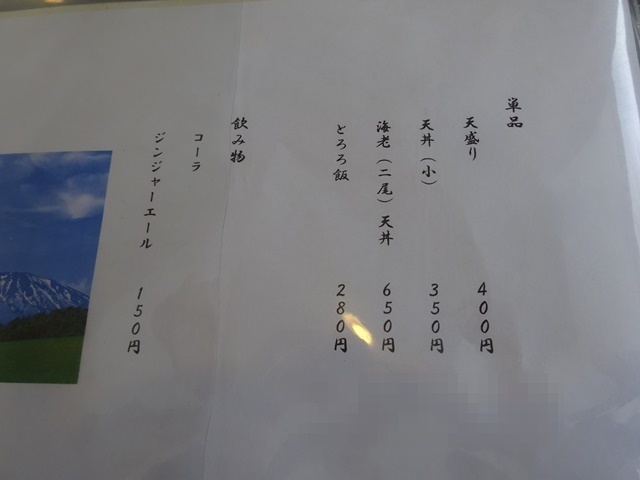 単品
天盛り 400円
天丼(小) 350円
海老(二尾)天丼 650円
とろろ飯 280円
飲み物
コーラ
ジンジャーエール 150円